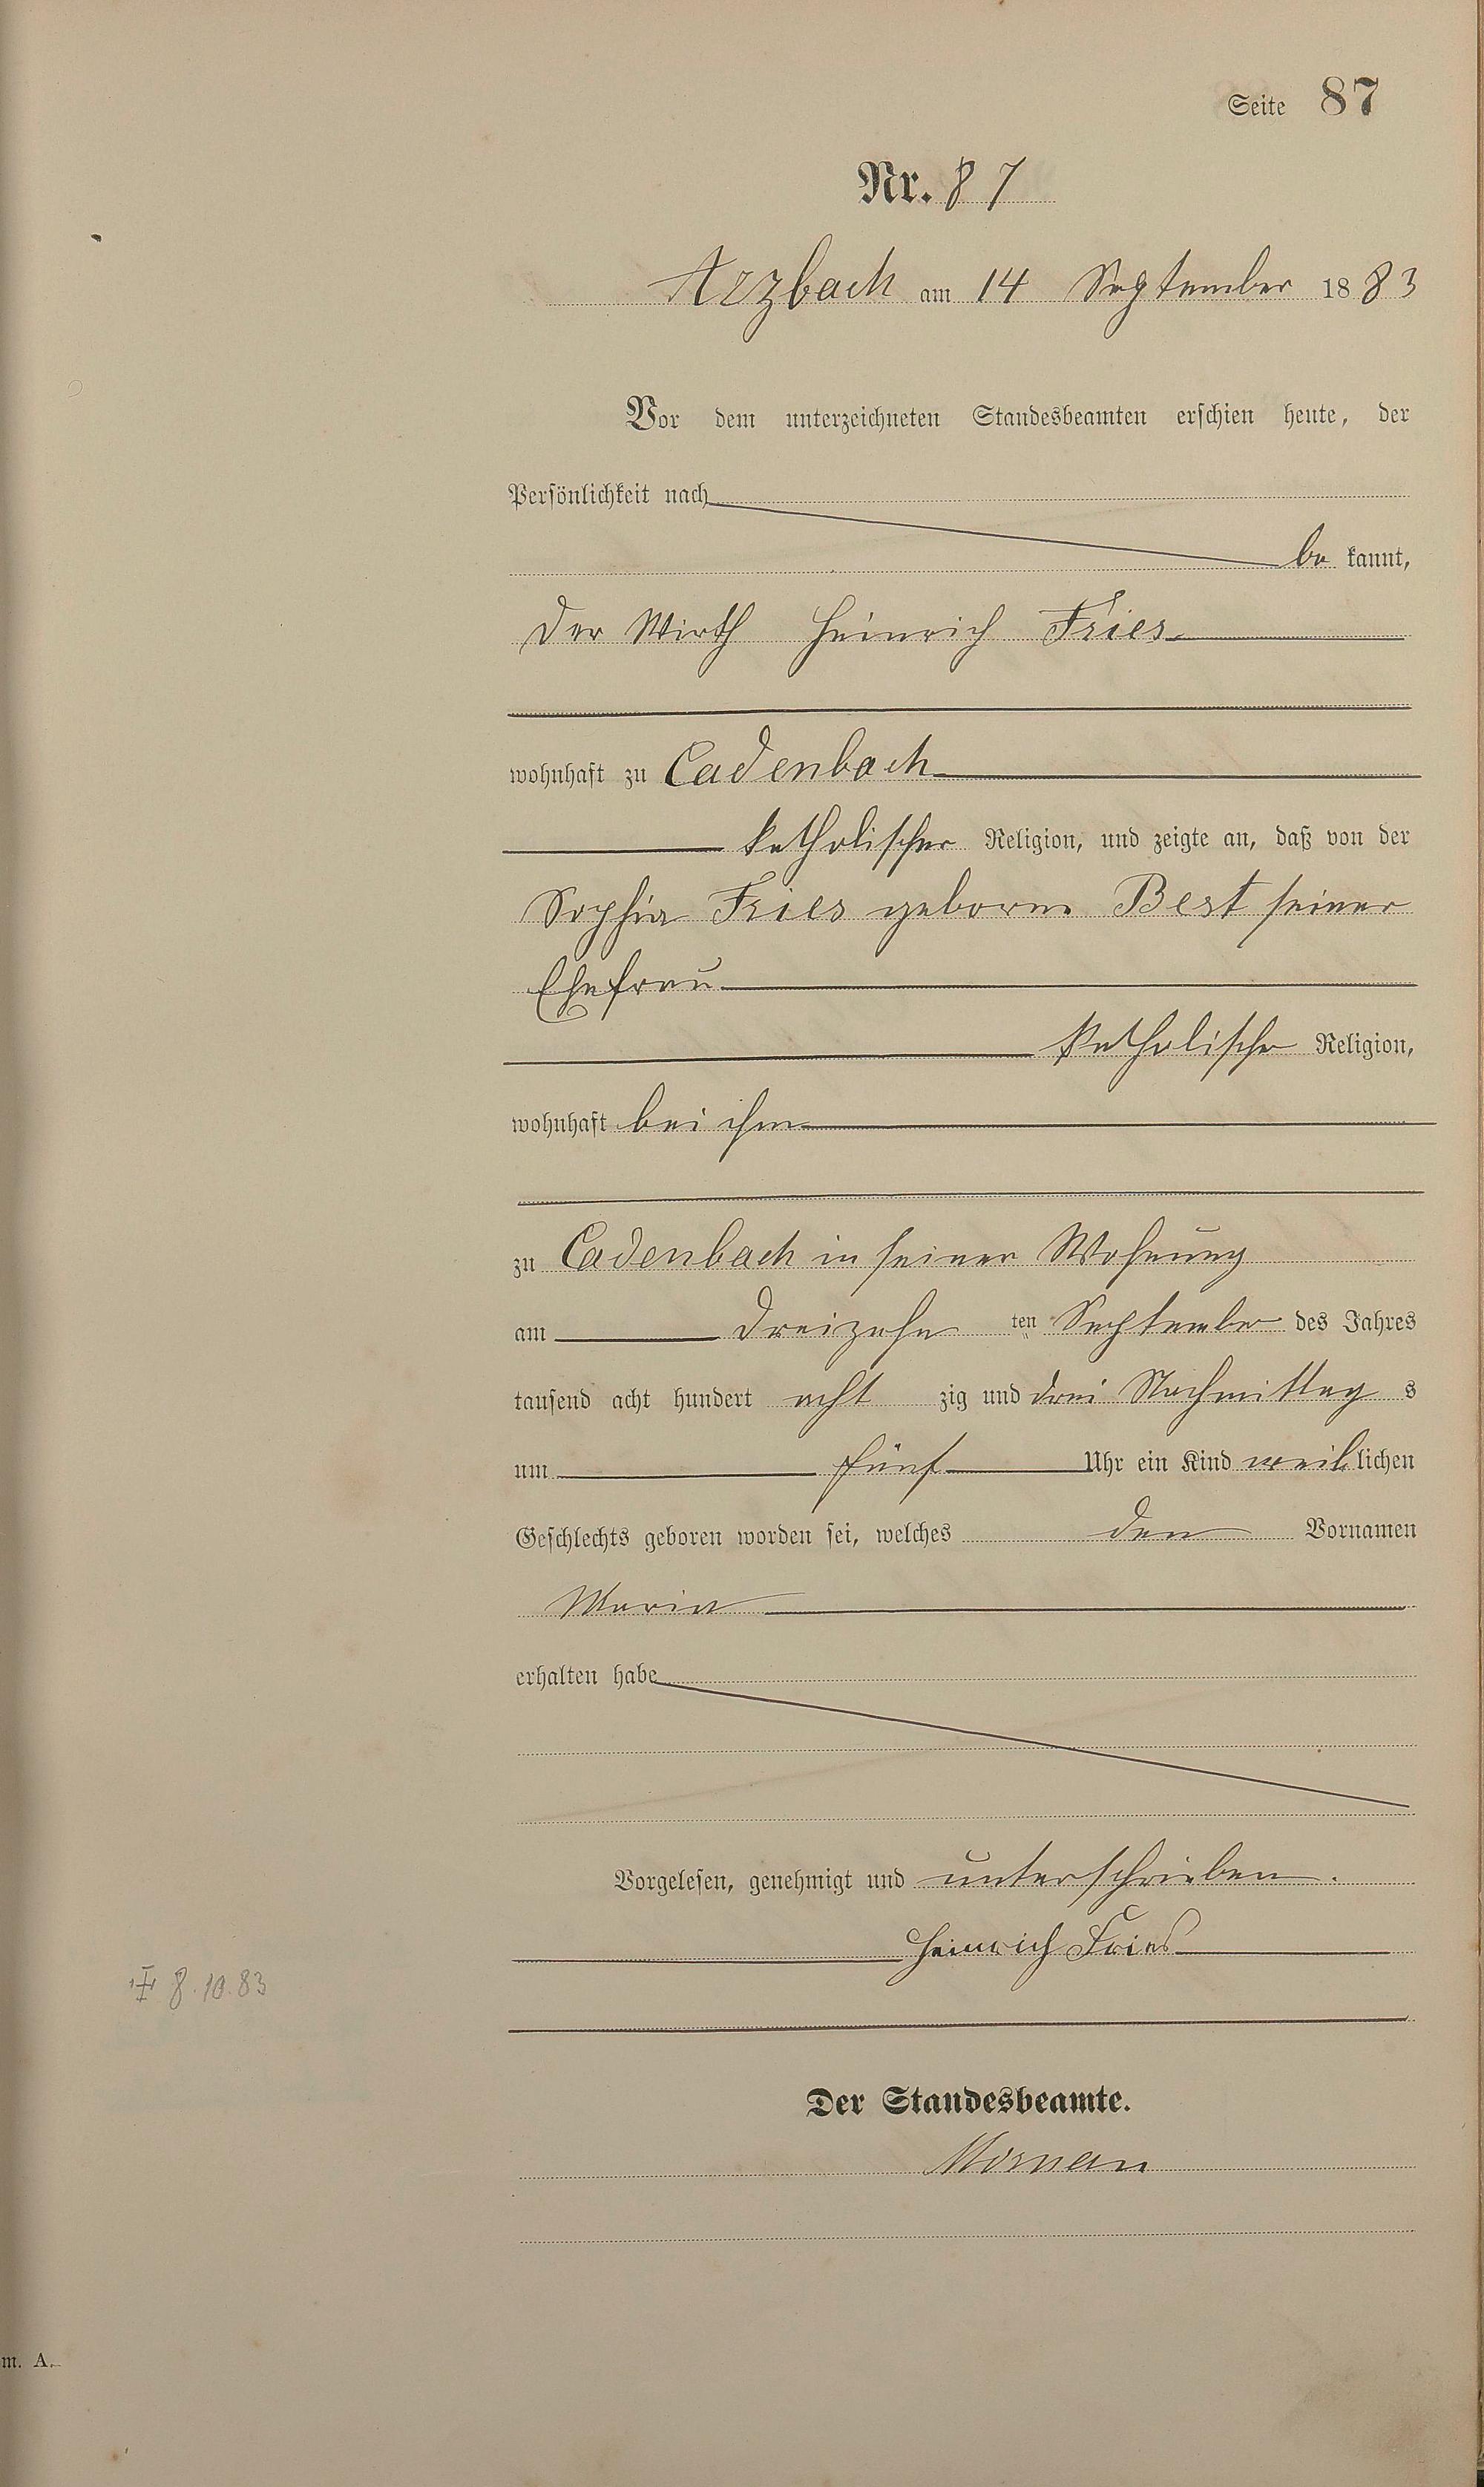 Seite 87
Nr. 87
Arzbach am 14 September 1883
Vor dem unterzeichneten Standesbeamten erschien heute, der
Persönlichkeit nach
be kannt,
der Wirth Heinrich Fries
wohnhaft zu Cadenbach
katholischer Religion, und zeigte an, daß von der
Sophia Fries geborne Best seiner
Ehefrau
katholischer Religion,
wohnhaft bei ihm
zu Cadenbach in seiner Wohnung
am dreizehn ten September des Jahres
tausend acht hundert acht zig und drei Nachmittag s
um fünf Uhr ein Kind weiblichen
Geschlechts geboren worden sei, welches den Vornamen
Maria
erhalten habe
Vorgelesen, genehmigt und unterschrieben.
Heinrich Fries
8.10.83
Der Standesbeamte.
m. A.